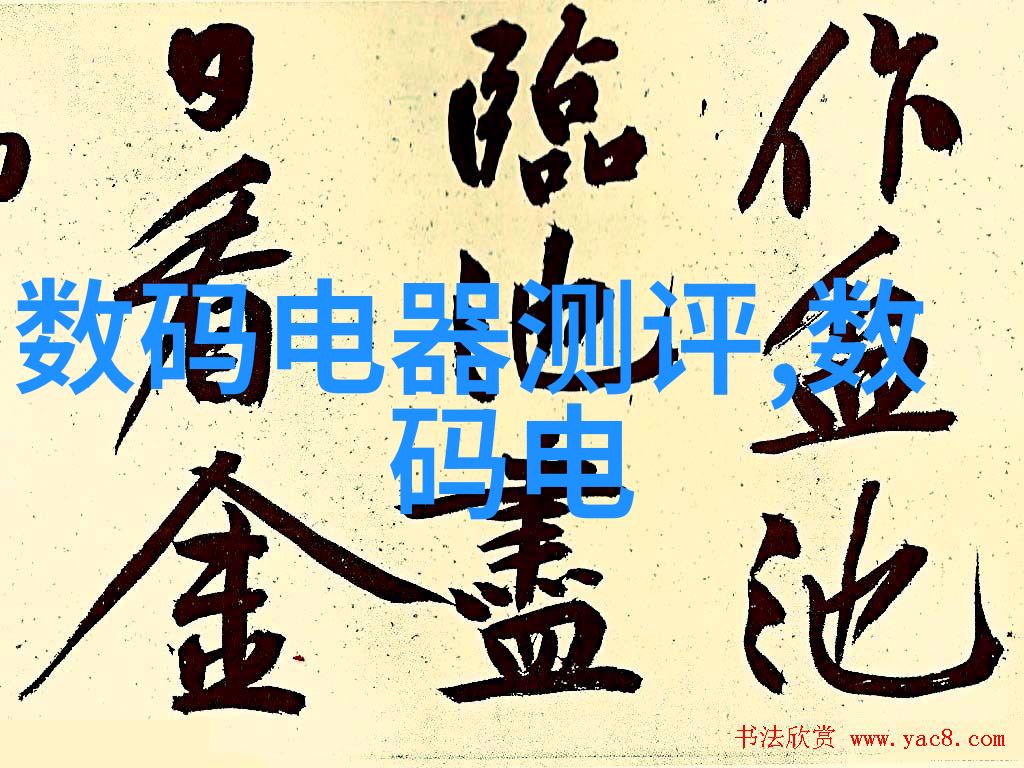 数码电器测评,数
码电
作盆池
臨盡
日看金
书法欣赏 www.yac8.com